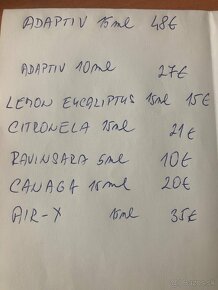 ADAPTIV 15ml 48€
ADAPTIV 10ml 27€
LEMON EUCALIPTUS 15ml 15€
CITRONELA 15ml 21€
RAVINSARA 5ml 10€
CANAGA 15ml 20€
AIR-X 15ml 35€